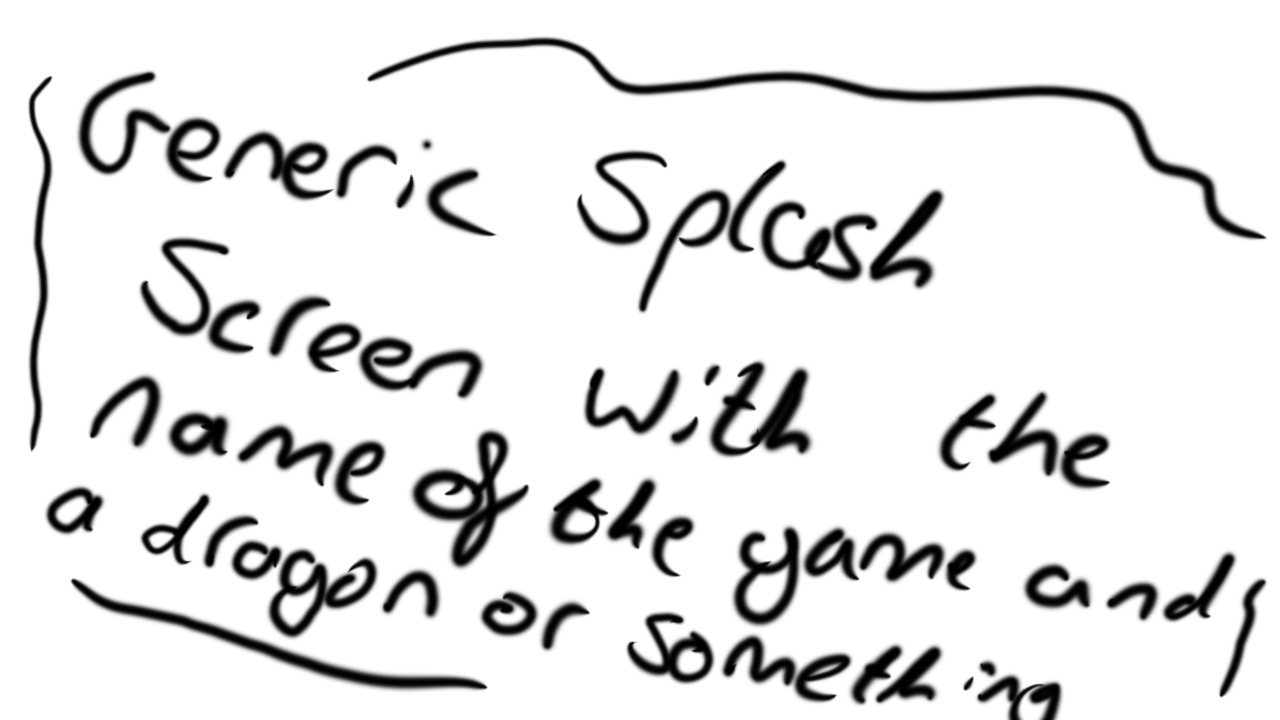 Generic Splash
Screen with the
name of the game and
a dragon or something